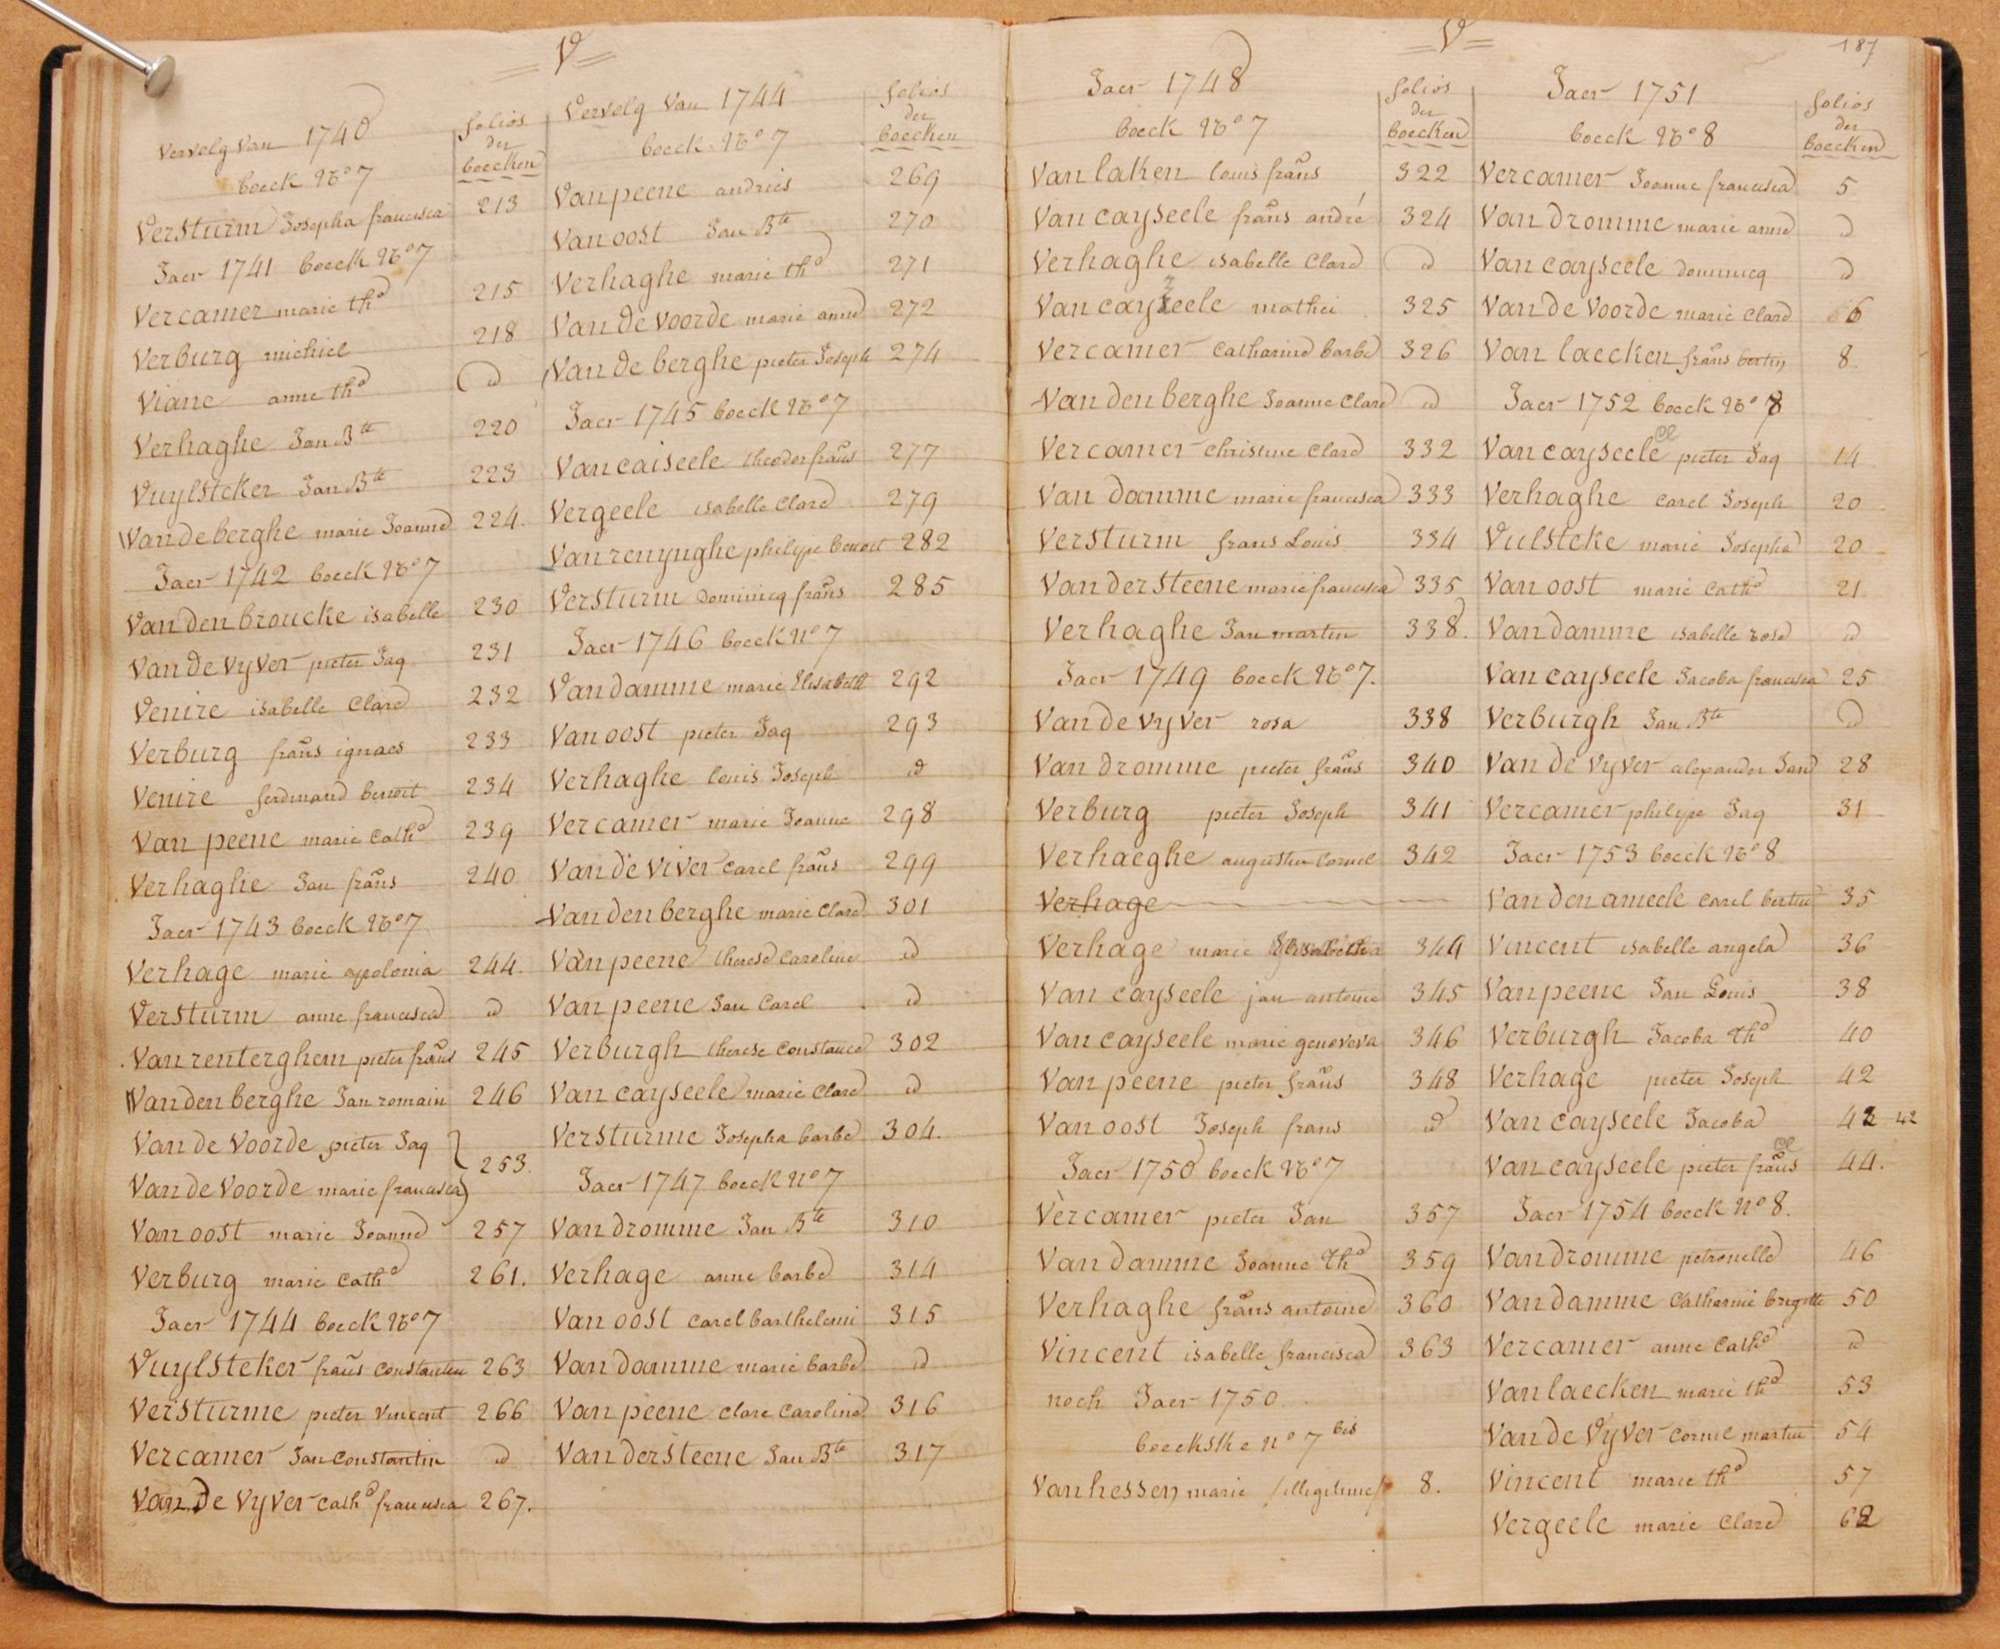 V
vervolg van 1740
folios der boecken
boeck No 7
Versturm Josepha francisca 213
Jaer 1741 boeck No 7
Vercamer marie the 215
Verburg michiel 218
Viane anne the id
Verhaghe Jan Bte 220
Vuylsteker Jan Bte 223
Vandeberghe marie Joanne 224.
Jaer 1742 boeck No 7
Vandenbroucke isabelle 230
Van de vyver pieter Jaq 231
Venire isabelle Clare 232
Verburg frans ignaes 233
Venire ferdinand benoit 234
Van peene marie Cathe 239
Verhaghe Jan frans 240
Jaer 1743 boeck No 7
Verhage marie apolonia 244.
Versturm anne francisca id
Vanrenterghem pieter frans 245
Vandenberghe Jan romain 246
Van de Voorde pieter Jaq
253.
Van de Voorde marie francisca
Van oost marie Joanne 257
Verburg marie Cathe 261.
Jaer 1744 boeck No 7
Vuylsteker frans Constantin 263
Versturme pieter Vincent 266
Vercamer Jan Constantin id
Van de Vyver cathe francisca 267.
Vervolg Van 1744
folios der boecken
boeck No 7
Vanpeene andries 269
Van oost Jan Bte 270
Verhaghe marie the 271
Van de voorde marie anne 272
Van de berghe pieter Joseph 274
Jaer 1745 boeck No 7
Van caiseele theodor frans 277
Vergeele isabelle Clare 279
Vanrenynghe philipe benoit 282
Versturm Dominicq frans 285
Jaer 1746 boeck no 7
Van damme marie Elisabeth 292
Van oost pieter Jaq 293
Verhaghe louis Joseph id
Vercamer marie Joanne 298
Van de viver carel frans 299
Van den berghe marie Clare 301
Van peene therese Caroline id
Van peene Jan Carel id
Verburgh therese Constance 302
Van cayseele marie Clare id
Versturme Josepha barbe 304.
Jaer 1747 boeck no 7
Van dromme Jan Bte 310
Verhage anne barbe 314
Van oost carel barthelemi 315
Van damme marie barbe id
Van peene Clare Caroline 316
Van der steene Jan Bte 317
V
Jaer 1748
folios der boecken
boeck No 7
Van laken louis frans 322
Van cayseele frans andré 324
Verhaghe isabelle Clare id
Van cayzeele mathei 325
Vercamer Catharine barbe 326
Van den berghe Joanne Clare id
Vercamer Christine Clare 332
Van damme marie francisca 333
Versturm frans Louis 334
Van der steene marie francisca 335
Verhaghe Jan martin 338.
Jaer 1749 boeck No 7.
Van de vyver rosa 338
Van dromme pieter frans 340
Verburg pieter Joseph 341
Verhaeghe augustin Cornel 342
Verhage
Verhage marie 344
Van cayseele jan antoine 345
Van cayseele marie genoveva 346
Van peene pieter frans 348
Van oost Joseph frans id
Jaer 1750 boeck No 7
Vercamer pieter Jan 357
Van damme Joanne The 359
Verhaghe frans antoine 360
Vincent isabelle francisca 363
noch Jaer 1750
boeckske no 7 bis
Vanhessen marie /illegitime/ 8.
187
Jaer 1751
folios der boecken
boeck No 8
Vercamer Joanne francisca 5
Van dromme marie anne id
Van cayseele dominicq id
Van de Voorde marie Clare 6
Van laecken frans bertin 8
Jaer 1752 boeck No 8
Van cayseele pieter Jaq 14
Verhaghe Carel Joseph 20
Vulsteke marie Josepha 20
Van oost marie Cathe 21
Van damme isabelle rose id
Van cayseele Jacoba francisca 25
Verburgh Jan Bte id
Van de vyver alexander Jan 28
Vercamer philipe Jaq 31
Jaer 1753 boeck No 8
Van den ameele carel bertin 35
Vincent isabelle angela 36
Van peene Jan Louis 38
Verburgh Jacoba The 40
Verhage pieter Joseph 42
Van cayseele Jacoba 42 42
Van cayseele pieter frans 44.
Jaer 1754 boeck no 8.
Van dromme petronelle 46
Van damme Catharine brigitte 50
Vercamer anne Cathe id
Van laecken marie the 53
Van de Vyver corneel martin 54
Vincent marie the 57
Vergeele marie Clare 62